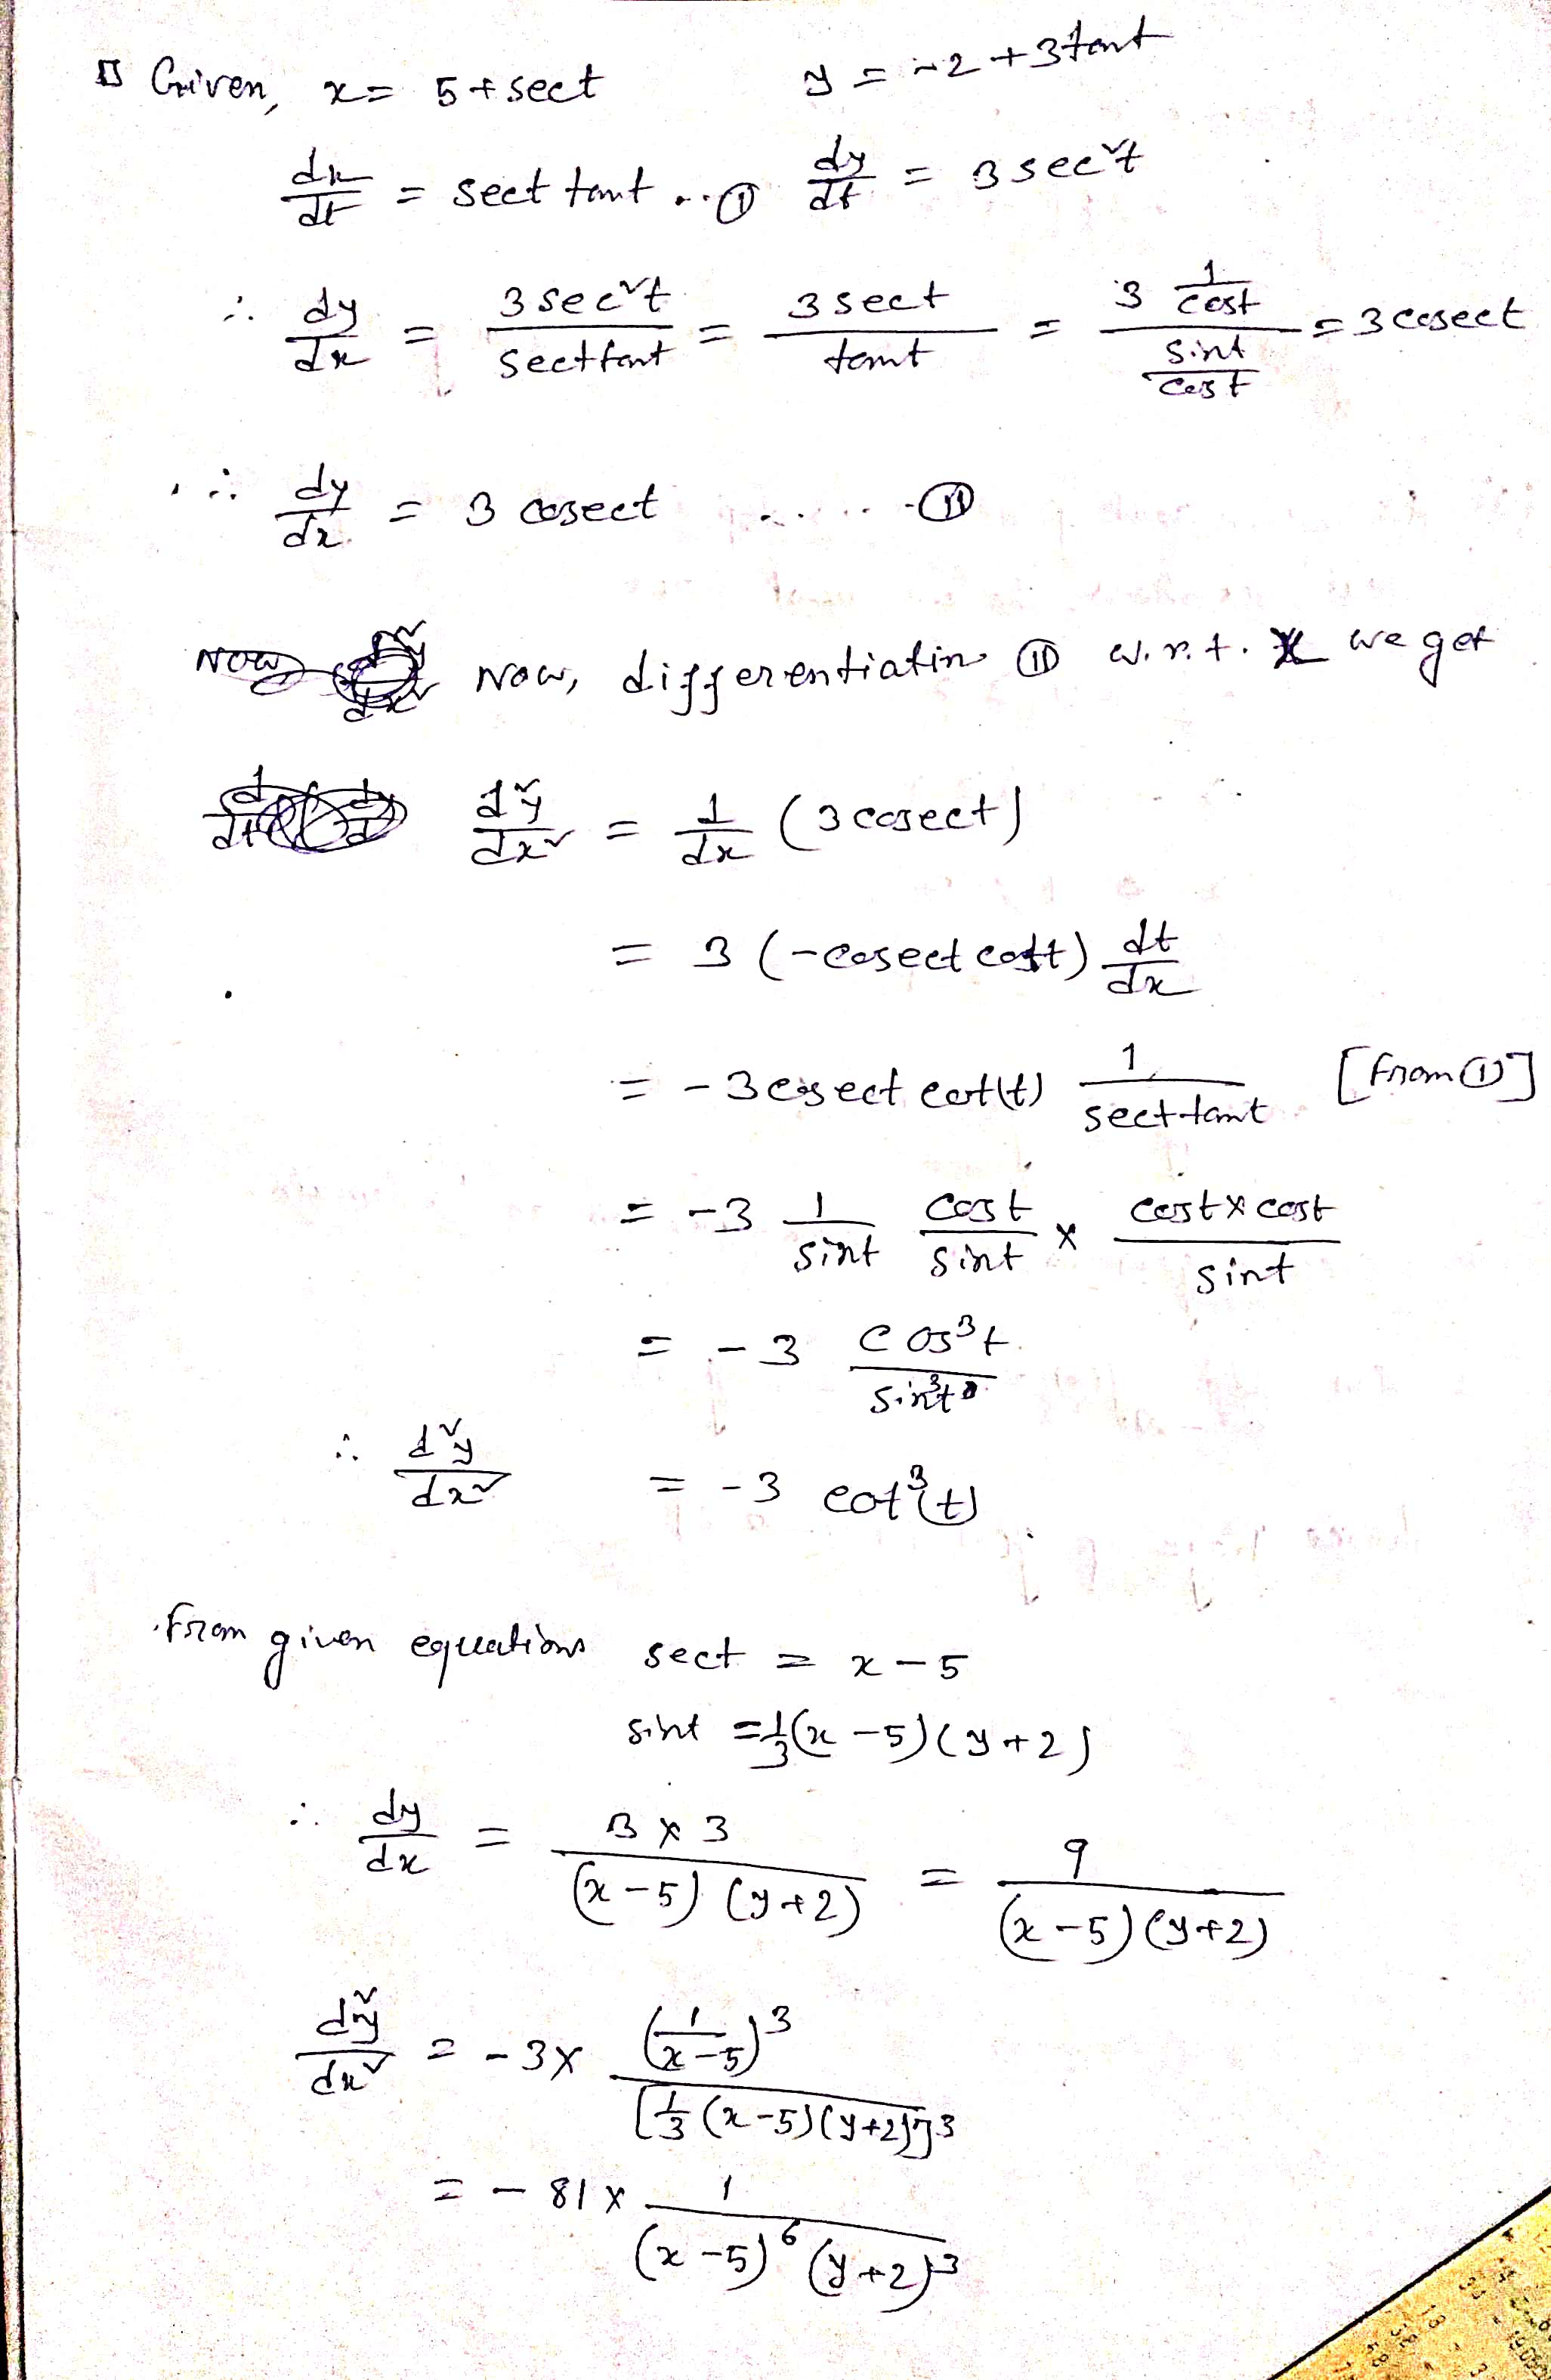 Given, x = 5 + sect y = -2 + 3 tant
dx/dt = sect tant ... ① dy/dt = 3 sec²t
∴ dy/dx = 3 sec²t / sect tant = 3 sect / tant = 3 1/cost / sint/cost = 3 cosect
∴ dy/dx = 3 cosect ..... ⑪
Now
Now, differentiatin ⑪ w.r.t. x we get
d²y/dx² = d/dx (3 cosect)
= 3 (-cosect cott) dt/dx
= -3 cosect cot(t) 1/sect tant [from ①]
= -3 1/sint cost/sint × cost × cost/sint
= -3 cos³t/sin³t
∴ d²y/dx² = -3 cot³(t)
From given equations sect = x - 5
sint = 1/3 (x - 5)(y + 2)
∴ dy/dx = 3 × 3 / (x - 5)(y + 2) = 9 / (x - 5)(y + 2)
d²y/dx² = -3 × (1/x-5)³ / [1/3 (x-5)(y+2)]³
= - 81 × 1 / (x - 5)⁶ (y + 2)³